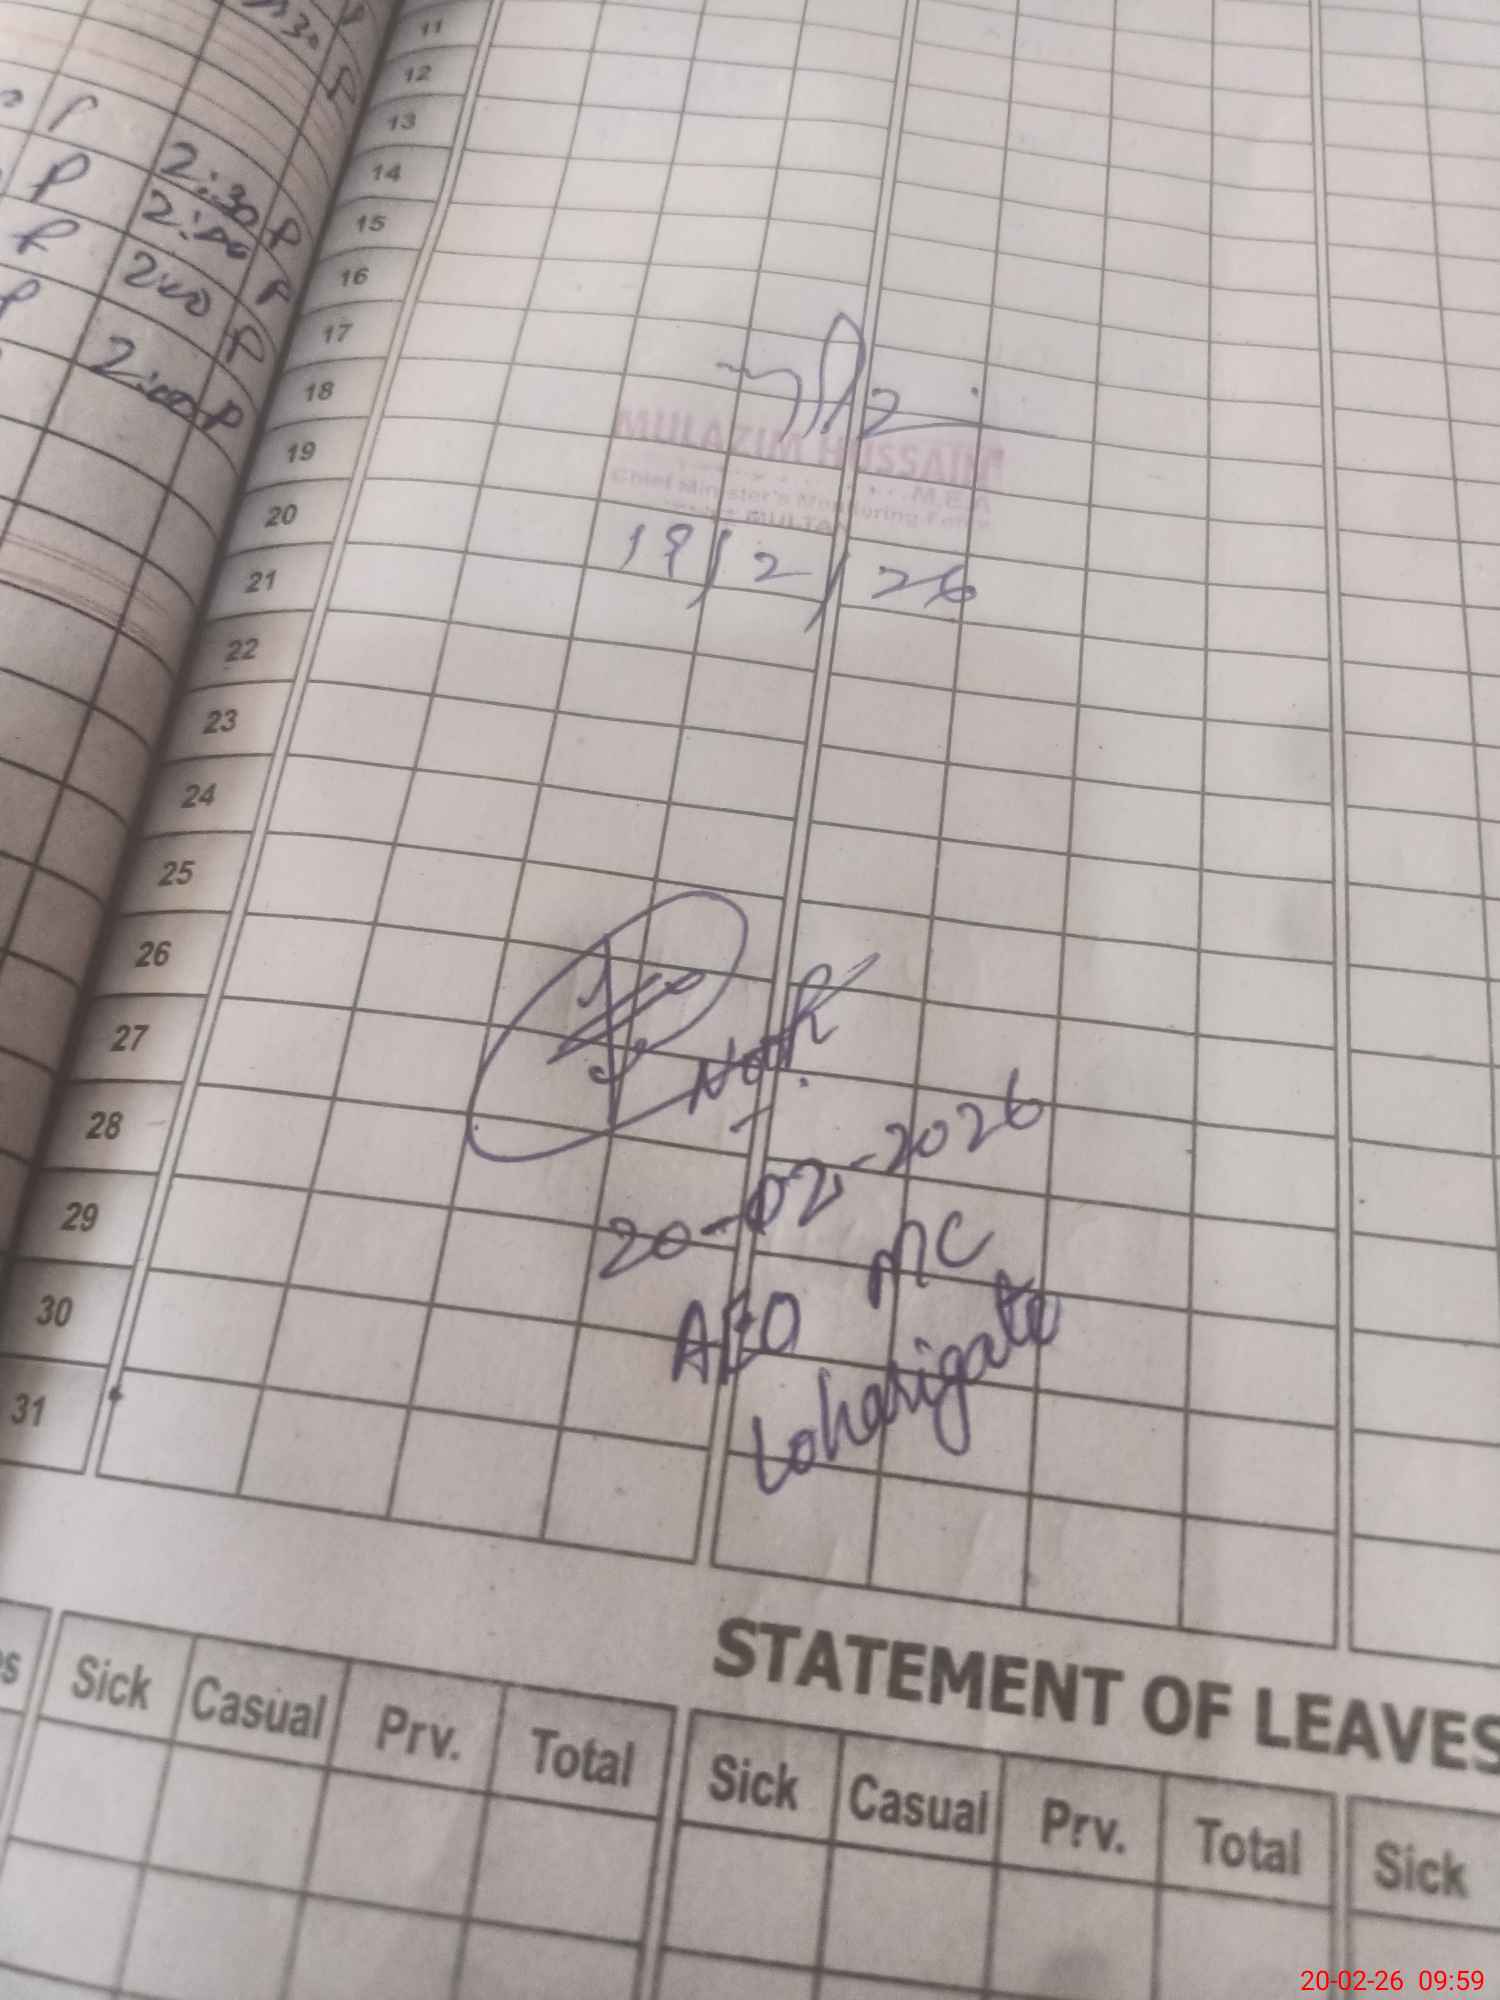 11
12
P
13
P 2:30 P
14
2:00 P
15
P 2:00 P
16
P 2:00 P
17
18
MULAZIM HUSSAIN
19
M.E.A
Chief Minister's Monitoring Force
20
MULTAN
19/2/26
21
22
23
24
25
26
27
28
20-02-2026
29
AEO MC
30
Loharigate
31
STATEMENT OF LEAVES
Sick Casual Prv. Total Sick Casual Prv. Total Sick
20-02-26 09:59